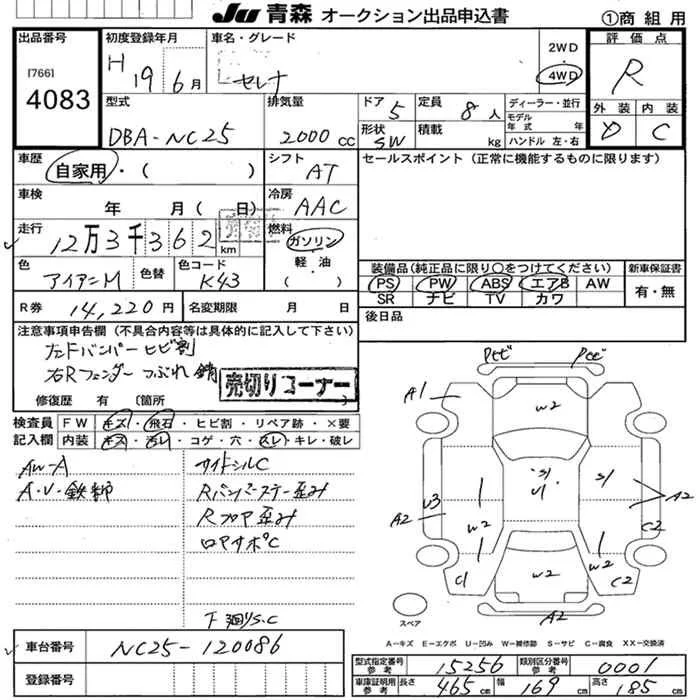 JU 青森 オークション出品申込書 ①商組用
出品番号
[766]
4083
初度登録年月
H 19 6月
車名・グレード
セレナ
2WD
・
4WD
評価点
R
外装 内装
D C
型式
DBA-NC25
排気量
2000 cc
ドア 5
定員 8人
ディーラー・並行
モデル年式 年式
形状 SW
積載 kg
ハンドル 左・右
車歴
自家用・( )
シフト
AT
セールスポイント (正常に機能するものに限ります)
車検
年 月( 日)
冷房
AAC
走行
12万3千362 km
燃料
ガソリン
軽油
( )
色
アイアンM
色替
色コード
K43
装備品(純正品に限り○をつけてください)
PS PW ABS エアB AW
SR ナビ TV カワ
新車保証書
有・無
R券 14,220円
名変期限 月 日
後日品
注意事項申告欄 (不具合内容等は具体的に記入して下さい)
右Rフェンダー つぶれ 錆
売切りコーナー
修復歴 有 〔箇所 〕
検査員記入欄
FW キズ・飛石・ヒビ割・リペア跡・×要
内装 キズ・汚レ・コゲ・穴・スレ・キレ・破レ
AW-A
サイドシルC
Rバンパーステー歪み
Rフロア歪み
ロアサポC
下廻りS.C
車台番号
NC25-120086
登録番号
Pヒビ Pヒビ
A1
W2
S/
U1
S/
U3
A2
W2
A2
C2
C1
W2
W2
C2
A2
スペア
A-キズ E-エクボ U-凹み W-補修跡 S-サビ C-腐食 XX-交換済
型式指定番号 参考 15256
類別区分番号 参考 0001
車庫証明用 参考 長さ 465cm 幅 169cm 高さ 185cm